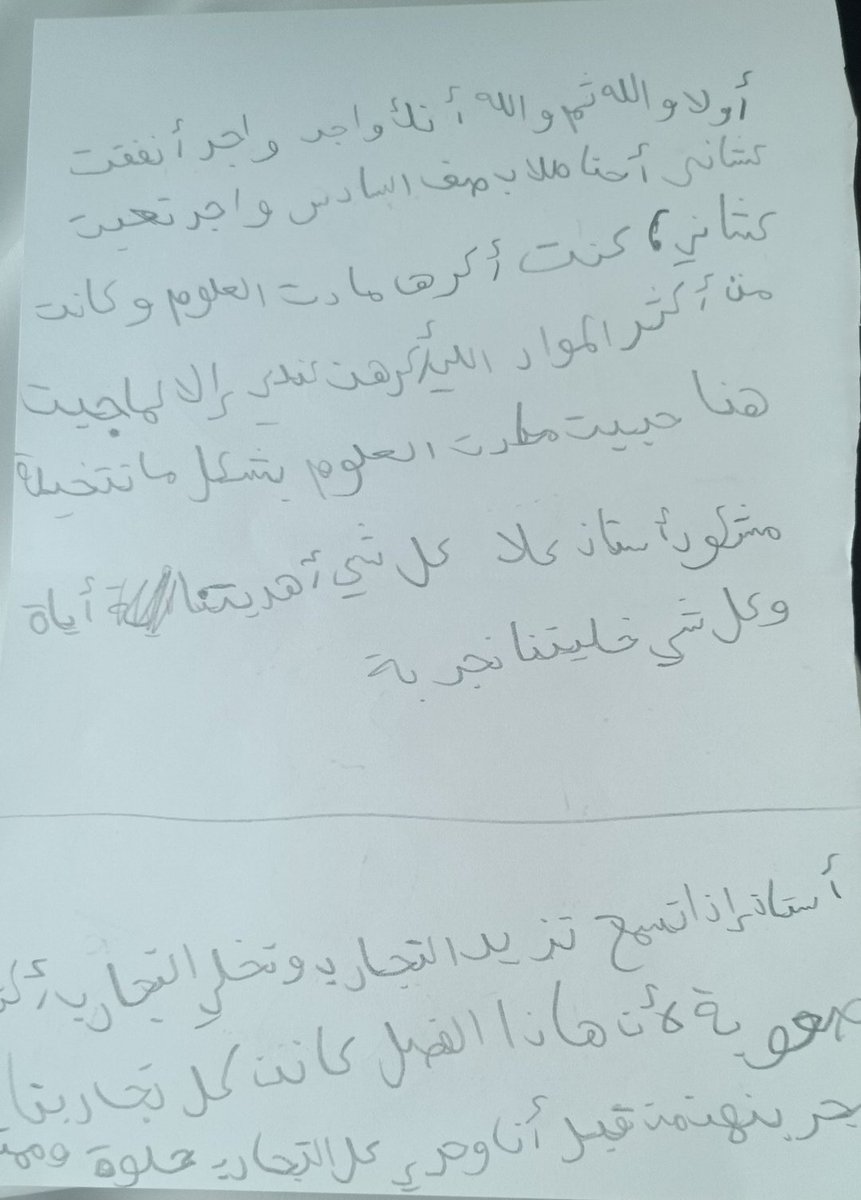 أولا والله ثم والله أنك واجد واجد أنفقت
عشاني أحنا طلاب صف السادس واجد تعبت
عشاني، كنت أكرها مادت العلوم وكانت
من أكثر المواد اللي أكرهن عندي إلا لما جيت
هنا حبيت مادت العلوم بشكل ما تتخيلة
مشكور أستاذ علا كل شي أهديتنا أياة
وكل شي خليتنا نجربة
أستاذ إذا تسمح تزيد التجارب وتخلي التجارب
صعوبة لأن هاذا الفصل كانت كل تجاربنا
من قبل أنا وحدي كل التجارب حلوة